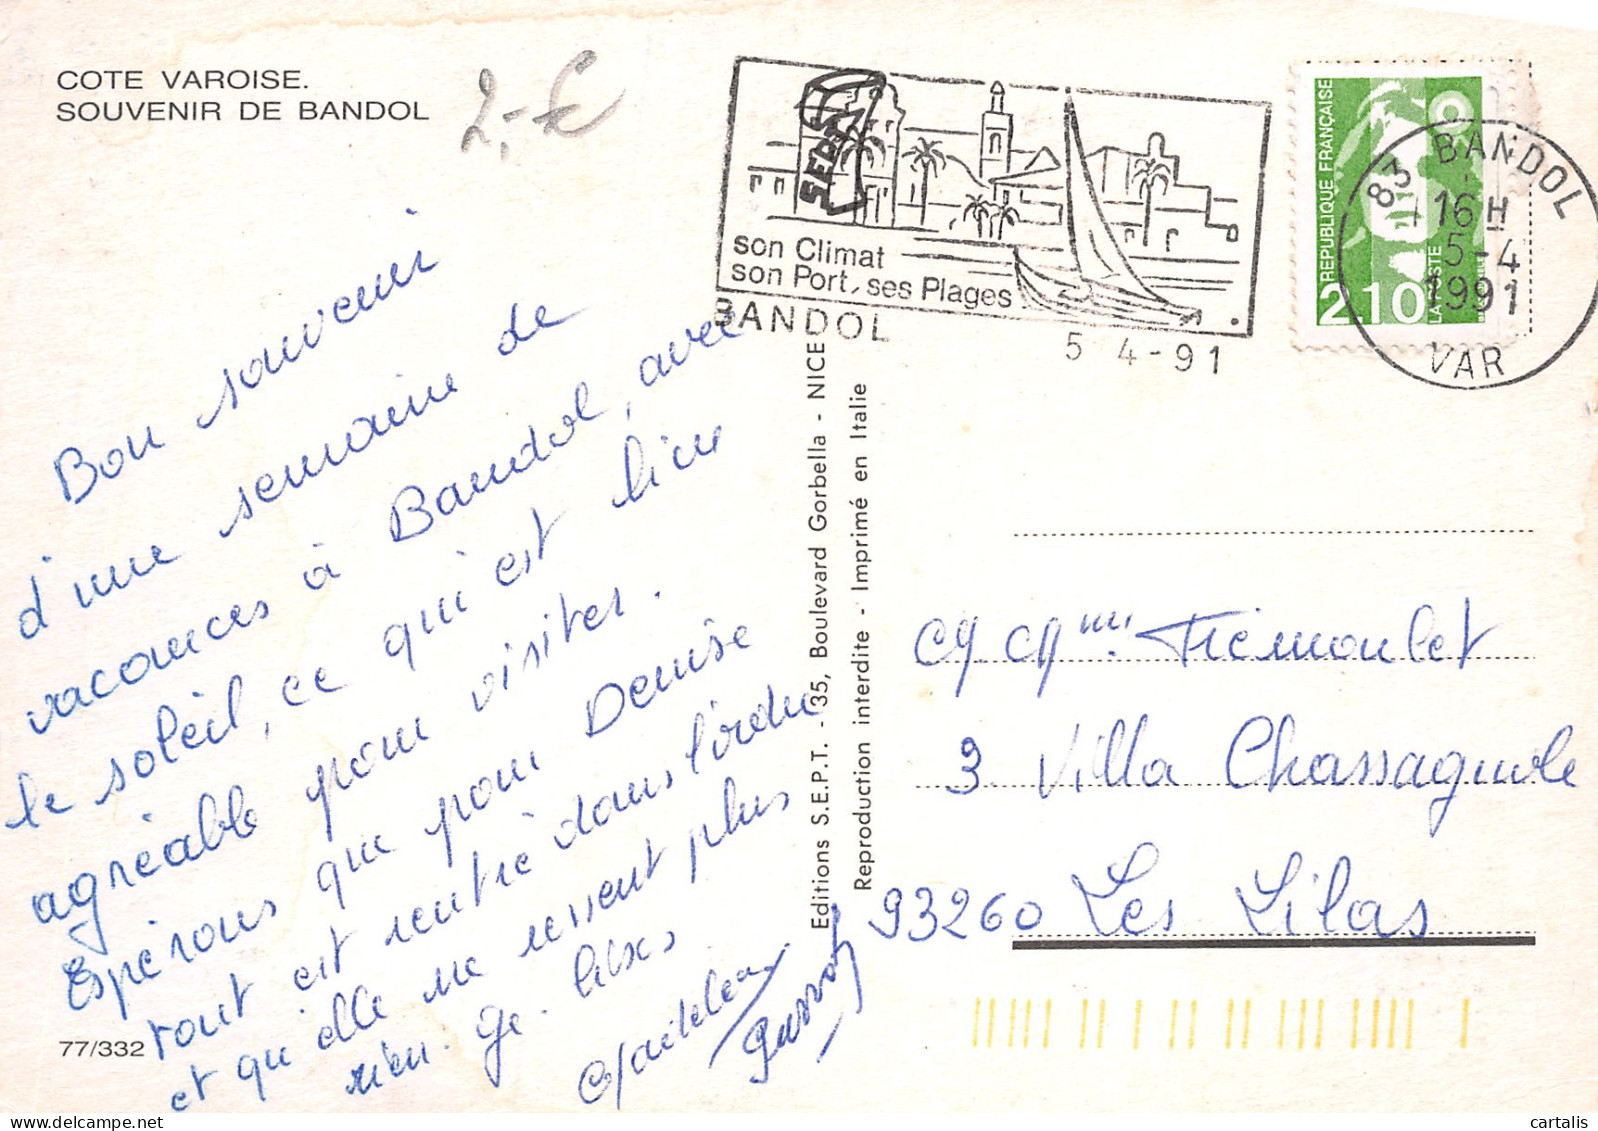 COTE VAROISE.
SOUVENIR DE BANDOL
2,-€
Bon souvenir
d'une semaine de
vacances à Bandol, avec
le soleil, ce qui est bien
agréable pour visiter.
Espérons que pour Denise
tout est rentré dans l'ordre
et qu'elle ne ressent plus
rien. Gr. bises
77/332
Editions S.E.P.T. - 35, Boulevard Gorbella - NICE
Reproduction interdite - Imprimé en Italie
son Climat
son Port, ses Plages
BANDOL
5 4-91
REPUBLIQUE FRANÇAISE
2,10
LA POSTE
83 BANDOL
16 H
5-4
1991
VAR
M. Mme Trémoulet
3 Villa Chassagnole
93260 Les Lilas
cartalis